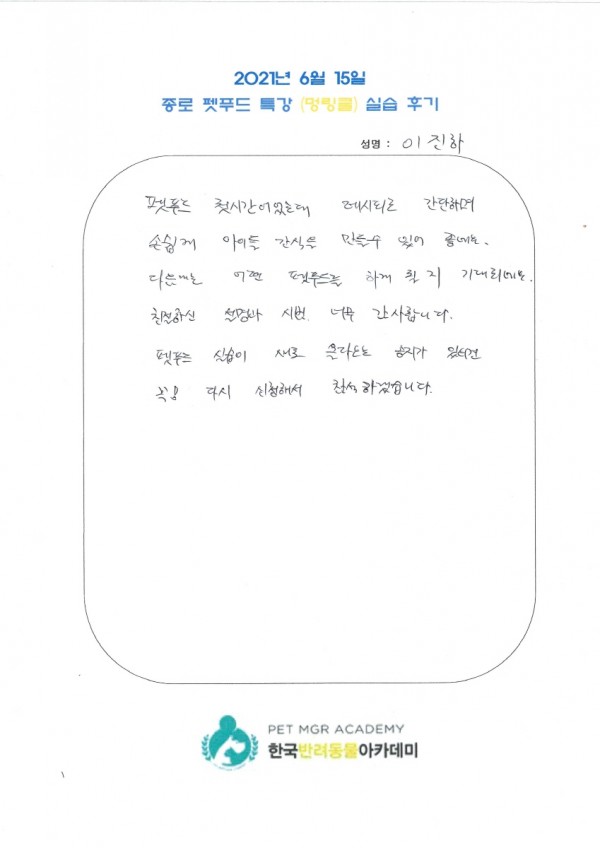 2021년 6월 15일
종로 펫푸드 특강 (멍링클) 실습 후기
성명 : 이진하
펫푸드 첫시간이었는데 레시피로 간단하며
손쉽게 아이들 간식을 만들수 있어 좋네요.
다음에는 어떤 펫푸드를 하게 될 지 기대되네요.
친절하신 설명과 시범. 너무 감사합니다.
펫푸드 실습이 새로 올라오는 공지가 있다면
꼭 다시 신청해서 참석하겠습니다.
PET MGR ACADEMY
한국반려동물아카데미